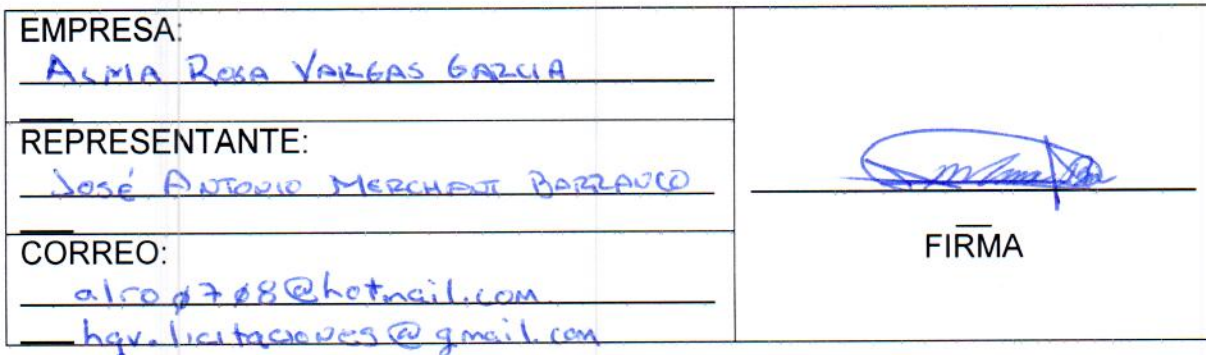 EMPRESA:
ALMA ROSA VARGAS GARCIA
REPRESENTANTE:
JOSÉ ANTONIO MERCHANT BARRANCO
CORREO:
alro0708@hotmail.com
hgv.licitaciones@gmail.com
FIRMA